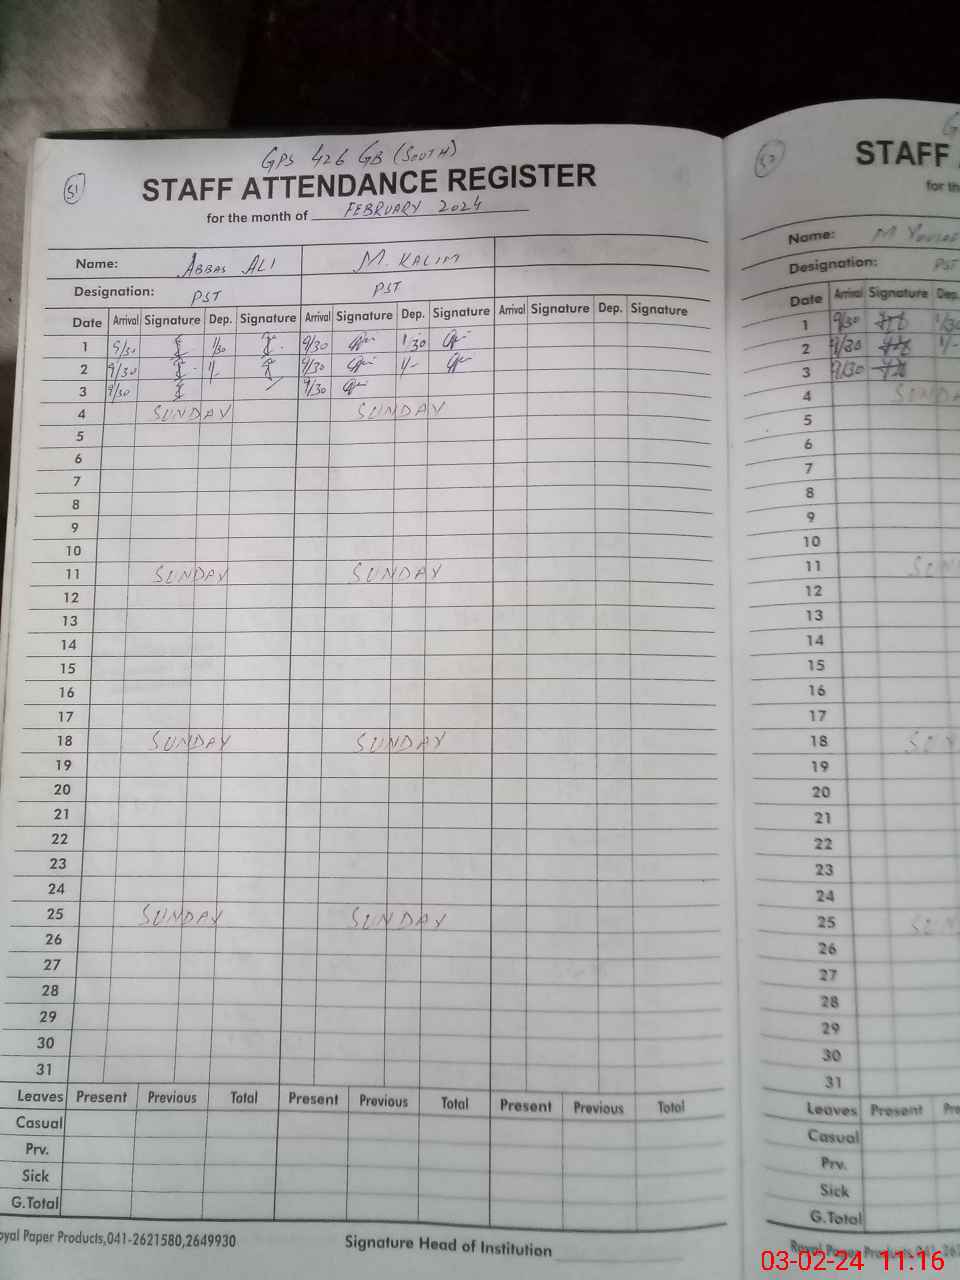 51
GPS 426 GB (SOUTH)
STAFF ATTENDANCE REGISTER
for the month of FEBRUARY 2024
Name: ABBAS ALI M. KALIM
Designation: PST PST
Date Arrival Signature Dep. Signature Arrival Signature Dep. Signature Arrival Signature Dep. Signature
1 9/30 1/30 9/30 1/30
2 9/30 1/- 9/30 1/-
3 9/30 9/30
4 SUNDAY SUNDAY
5
6
7
8
9
10
11 SUNDAY SUNDAY
12
13
14
15
16
17
18 SUNDAY SUNDAY
19
20
21
22
23
24
25 SUNDAY SUNDAY
26
27
28
29
30
31
Leaves Present Previous Total Present Previous Total Present Previous Total
Casual
Prv.
Sick
G.Total
oyal Paper Products,041-2621580,2649930
Signature Head of Institution
52
STAFF
for th
Name: M
Designation: PST
Date Arrival Signature Dep.
1 9/30 1/30
2 9/30 1/-
3 9/30
4 SUNDA
5
6
7
8
9
10
11 SUN
12
13
14
15
16
17
18 SUN
19
20
21
22
23
24
25 SUN
26
27
28
29
30
31
Leaves Present Pre
Casual
Prv.
Sick
G.Total
Royal Paper Products,041-262
03-02-24 11:16